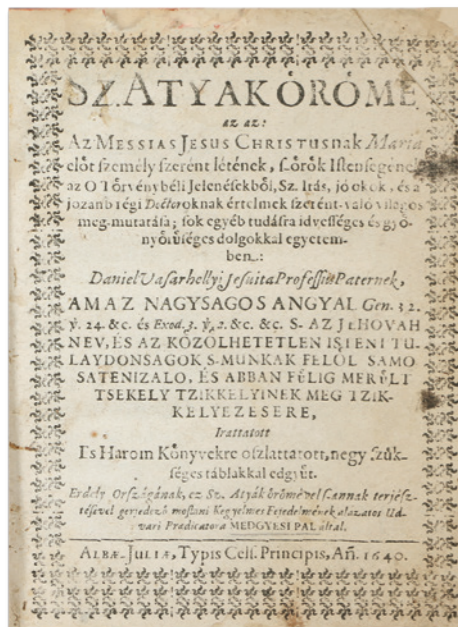 SZ. ATYAK ÖRÖME
az az:
Az MESSIAS JESUS CHRISTUSnak Maria
elöt személy szerént létének, s örök Istenségének
az O Törvény béli Jelenésekből, Sz. Irás, jó okok, és a
jozanb régi Doctoroknak értelmek szerént-való világos
meg-mutatása; sok egyéb tudásra idvességes és gyö-
nyörűséges dolgokkal egyetem-
ben.:
Daniel Vasarhellyi Jesuita Professus Paternek,
AMAZ NAGYSAGOS ANGYAL Gen. 32.
ỳ. 24. &c. és Exod. 3. ỳ. 2. &c. &c. S- AZ JEHOVAH
NEV, ÉS AZ KÖZÖLHETETLEN ISTENI TU-
LAYDONSAGOK S-MUNKAK FELÖL SAMO-
SATENIZALO, ÉS ABBAN FÉLIG MERÜLT
TSEKELY TZIKKELYINEK MEG TZIK-
KELYEZESERE,
Irattatott
Es Harom Könyvekre oszlattatott, negy szük-
séges táblakkal edgyüt.
Erdely Országának, ez Sz. Atyák örömével s annak terjesz-
tésével gerjedező mostani Kegyelmes Fejedelmének alázatos Ud-
vari Prædicatora MEDGYESI PAL által.
ALBÆ-JULIÆ, Typis Cels. Principis, Añ. 1640.